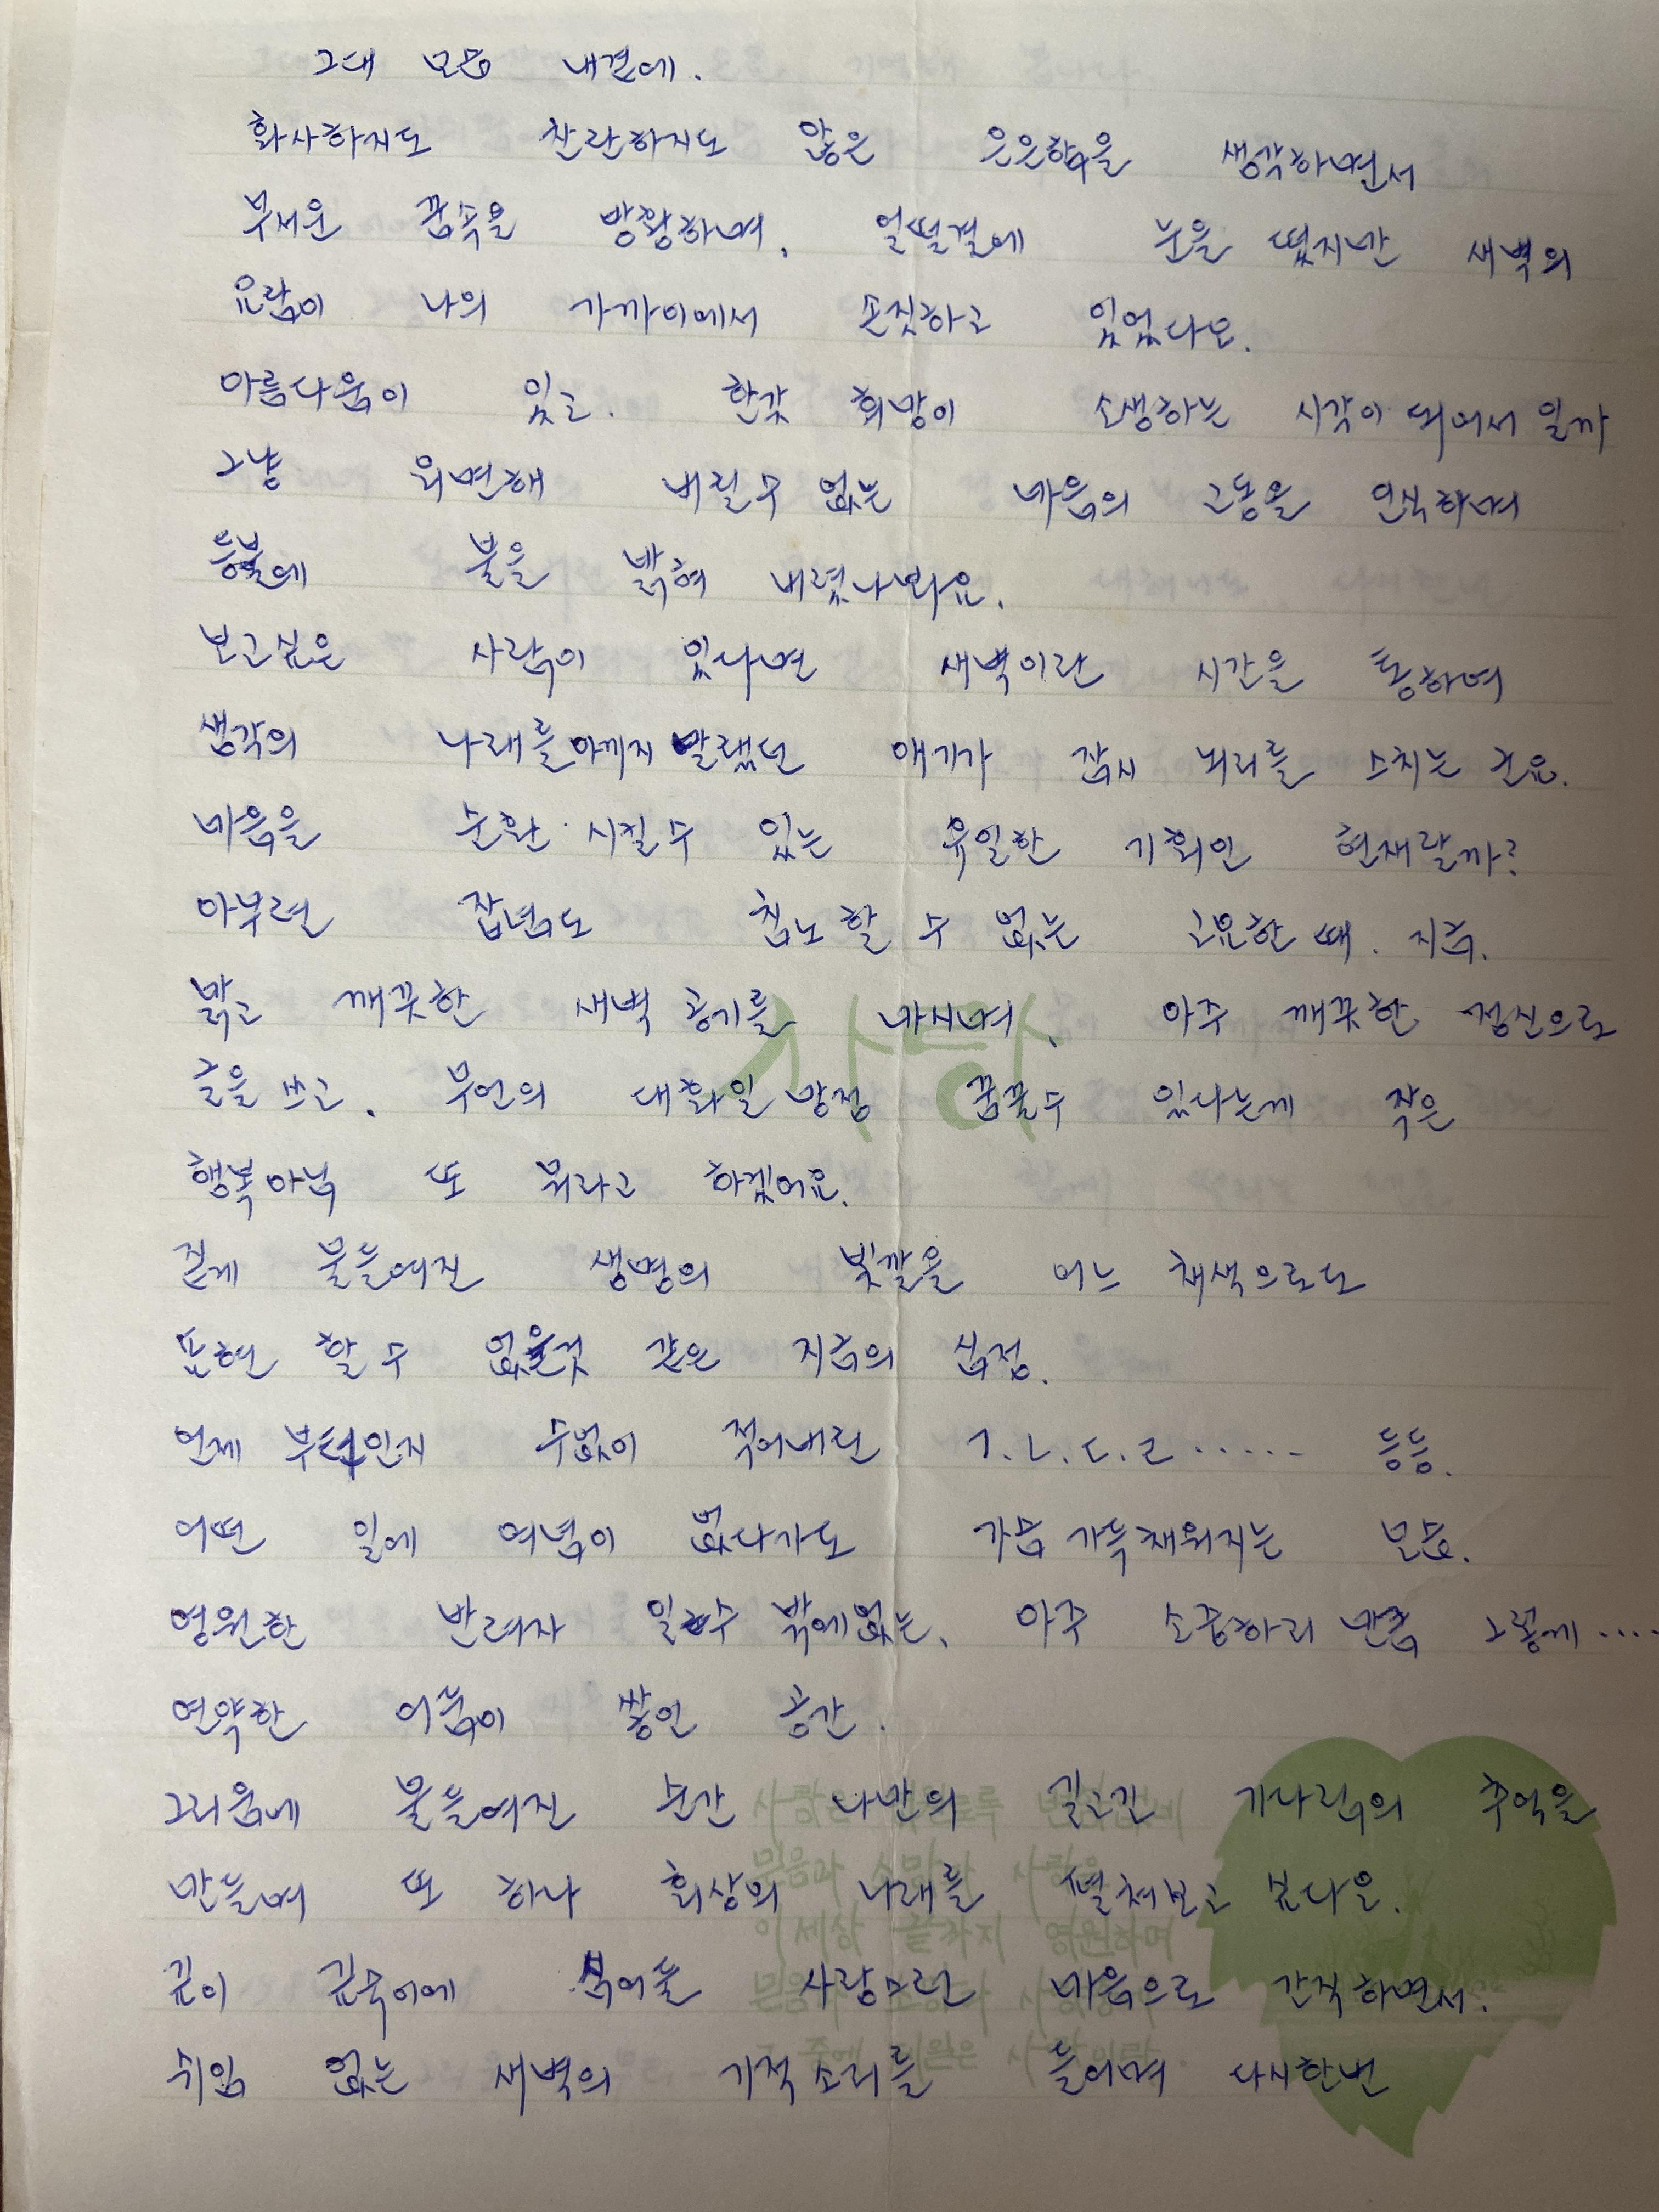 그대 모습 내곁에.
화사하지도 찬란하지도 않은 은은함을 생각하면서
무서운 꿈속을 방황하며, 얼떨결에 눈을 떴지만 새벽의
요람이 나의 가까이에서 손짓하고 있었다오.
아름다움이 있고. 한갖 희망이 소생하는 시각이 되어서 일까
그냥 외면해 버릴수 없는 마음의 고동을 인식하며
등불에 불을 밝혀 버렸나봐요.
보고싶은 사람이 있다면 새벽이란 시간을 통하여
생각의 나래를 아끼지 말랬던 얘기가 잠시 뇌리를 스치는 군요.
마음을 순환 시킬수 있는 유일한 기회인 현재랄까?
아무런 잡념도 침노할 수 없는 고요한 때. 지금.
맑고 깨끗한 새벽 공기를 마시며, 아주 깨끗한 정신으로
글을 쓰고. 무언의 대화일 망정 꿈꿀수 있다는게 작은
행복아님 또 뭐라고 하겠어요.
짙게 물들여진 생명의 빛깔을 어느 채색으로도
표현 할 수 없을것 같은 지금의 심정.
언제 부터인지 수없이 적어내린 ㄱ.ㄴ.ㄷ.ㄹ...... 등등.
어떤 일에 여념이 없다가도 가슴 가득채워지는 모습.
영원한 반려자 일수 밖에없는, 아주 소중하리 만큼 그렇게....
연약한 어둠이 쌓인 공간.
그리움에 물들여진 순간 나만의 길고긴 기다림의 추억을
만들며 또 하나 회상의 나래를 펼쳐보고 싶다오.
깊이 깊숙이에 묵어둘 사랑스런 마음으로 간직하면서.
쉬임 없는 새벽의 기적소리를 들으며 다시한번
사랑
믿음과 소망과 사랑은
이 세상 끝까지 영원하며